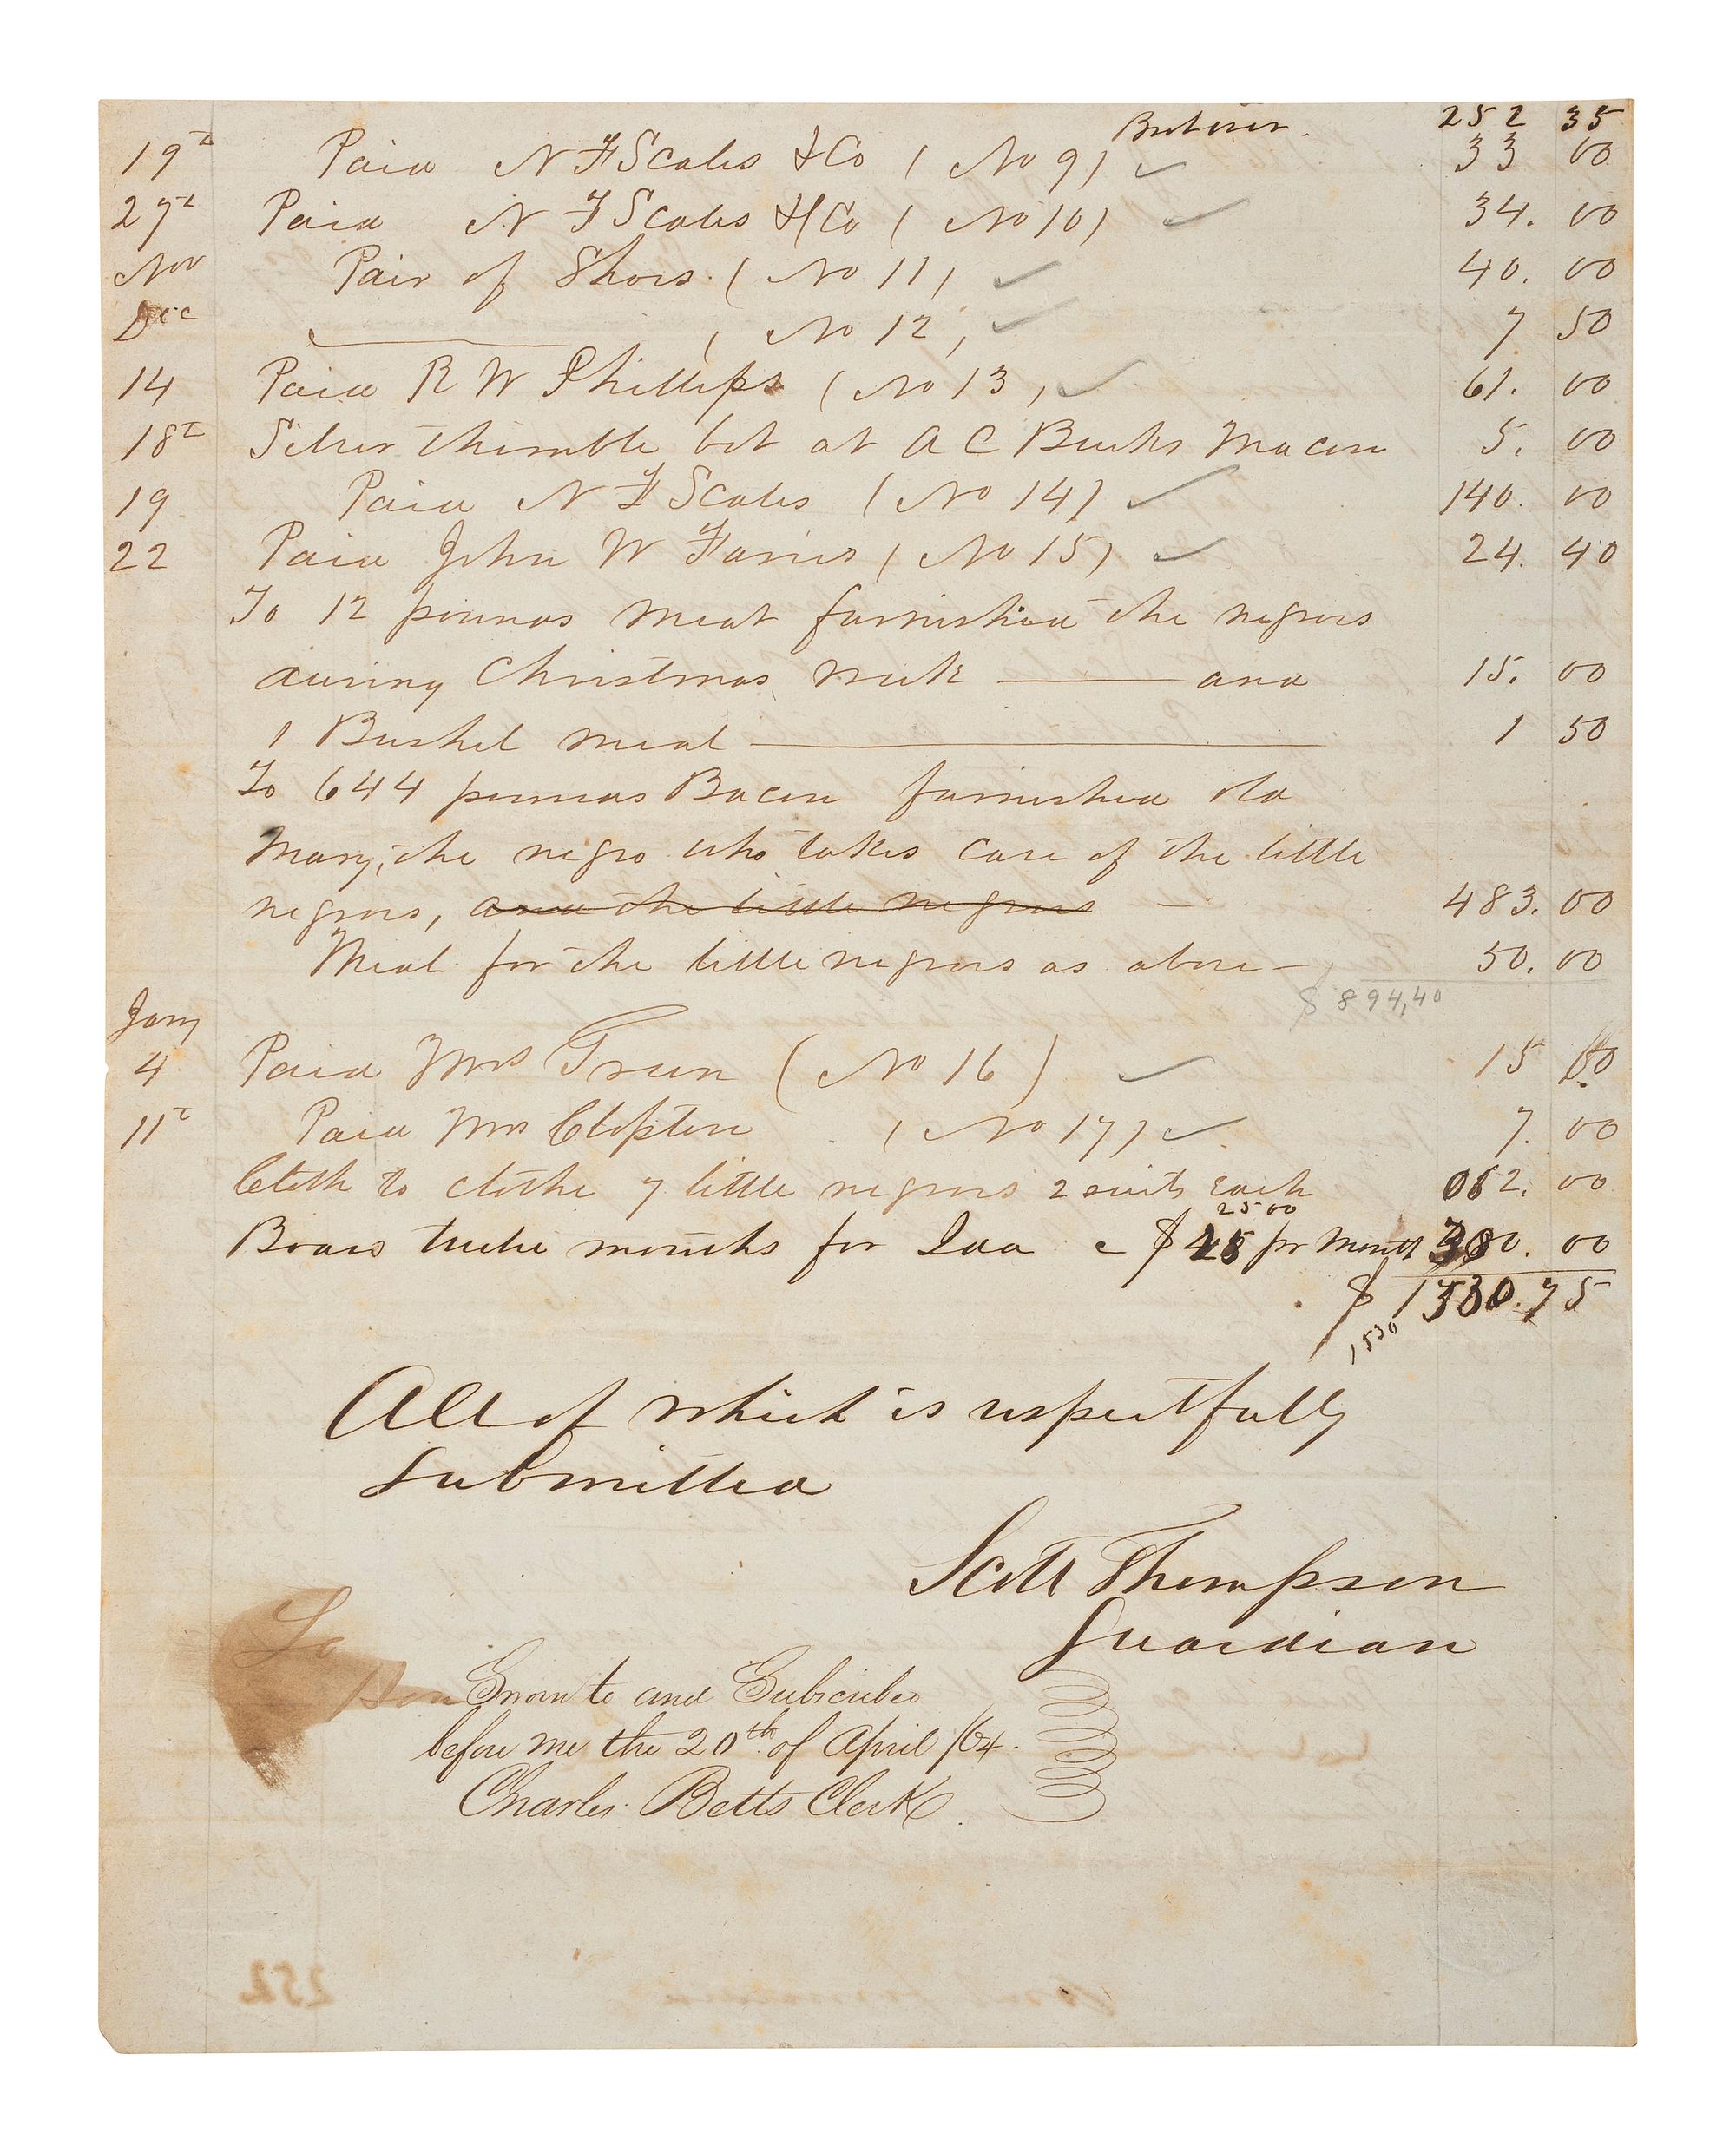 Bro't over. 252 35
19th Paid N F Scales & Co (No 9) 33 00
27th Paid N F Scales & Co (No 10) 34. 00
Nov Pair of Shoes. (No 11) 40. 00
Dec (No 12) 7 50
14 Paid R W Phillips (No 13) 61. 00
18th Silver thimble bot at A C Burks Macon 5. 00
19 Paid N F Scales (No 14) 140. 00
22 Paid John W Farris (No 15) 24. 40
To 12 pounds meat furnished the negroes
during Christmas week and 15. 00
1 Bushel meal 1 50
To 644 pounds Bacon furnished old
Mary, the negro who takes care of the little
negroes, and the little negroes 483. 00
Meal for the little negroes as above 50. 00
$ 894,40
Jany
4 Paid Mrs Truen (No 16) 15 00
11th Paid Mrs Clopton (No 17) 7. 00
Cloth to clothe 7 little negroes 2 suits each 62. 00
25 00
Board twelve months for Ida @ $25 pr Month 300. 00
$ 1530.75
1530
All of which is respectfully
submitted
Scott Thompson
Guardian
Sworn to and Subscribed
before me the 20th of April /64.
Charles Betts Clerk.
252